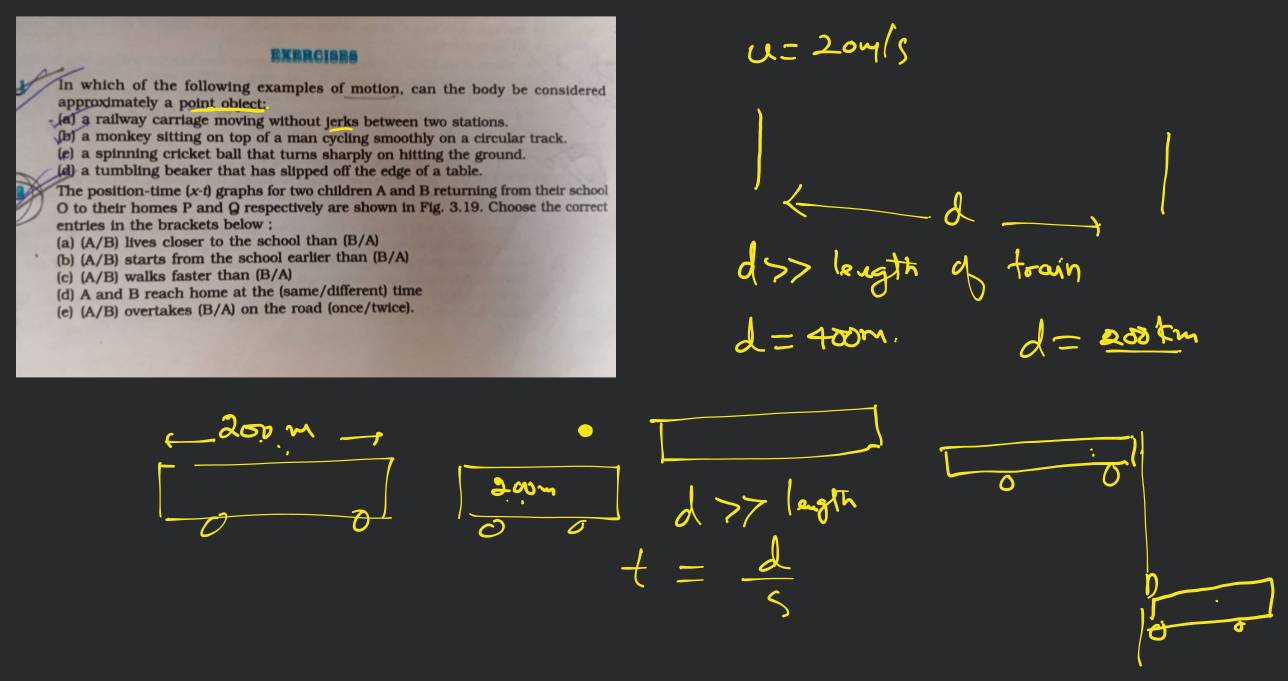 EXERCISES
In which of the following examples of motion, can the body be considered
approximately a point object:
(a) a railway carriage moving without jerks between two stations.
(b) a monkey sitting on top of a man cycling smoothly on a circular track.
(c) a spinning cricket ball that turns sharply on hitting the ground.
(d) a tumbling beaker that has slipped off the edge of a table.
The position-time (x-t) graphs for two children A and B returning from their school
O to their homes P and Q respectively are shown in Fig. 3.19. Choose the correct
entries in the brackets below ;
(a) (A/B) lives closer to the school than (B/A)
(b) (A/B) starts from the school earlier than (B/A)
(c) (A/B) walks faster than (B/A)
(d) A and B reach home at the (same/different) time
(e) (A/B) overtakes (B/A) on the road (once/twice).
u = 20m/s
d
d >> length of train
d = 400m.
d = 200 km
200 m
200m
d >> length
t = d/s